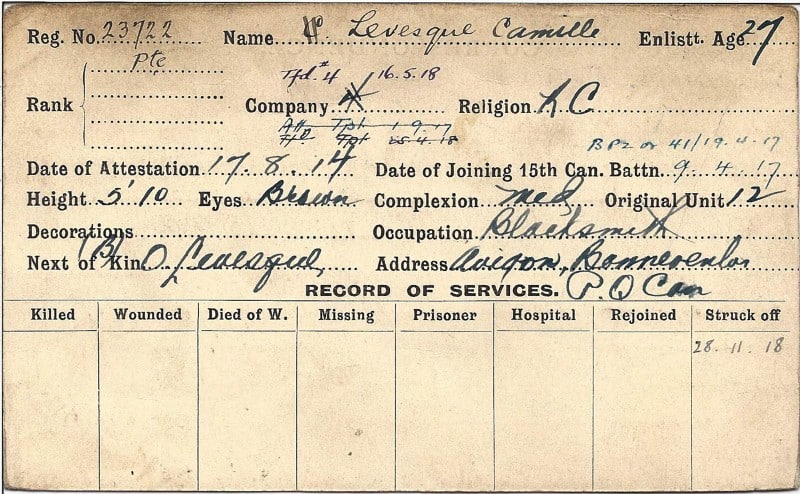 Reg. No. 23722 Name Levesque Camille Enlistt. Age 27
Pte
Trd. #4 16.5.18
Rank Company 4 Religion R C
Att Tpt 1.9.17
Tpt 25.4.18
BP2 or 41/19.4.17
Date of Attestation 17.8.14 Date of Joining 15th Can. Battn. 9.4.17
Height 5' 10 Eyes Brown Complexion Med Original Unit 12
Decorations Occupation Blacksmith
Next of Kin (B) O. Levesque, Address Avigon, Bonneventor
RECORD OF SERVICES. P.Q Can
Killed Wounded Died of W. Missing Prisoner Hospital Rejoined Struck off
28.11.18